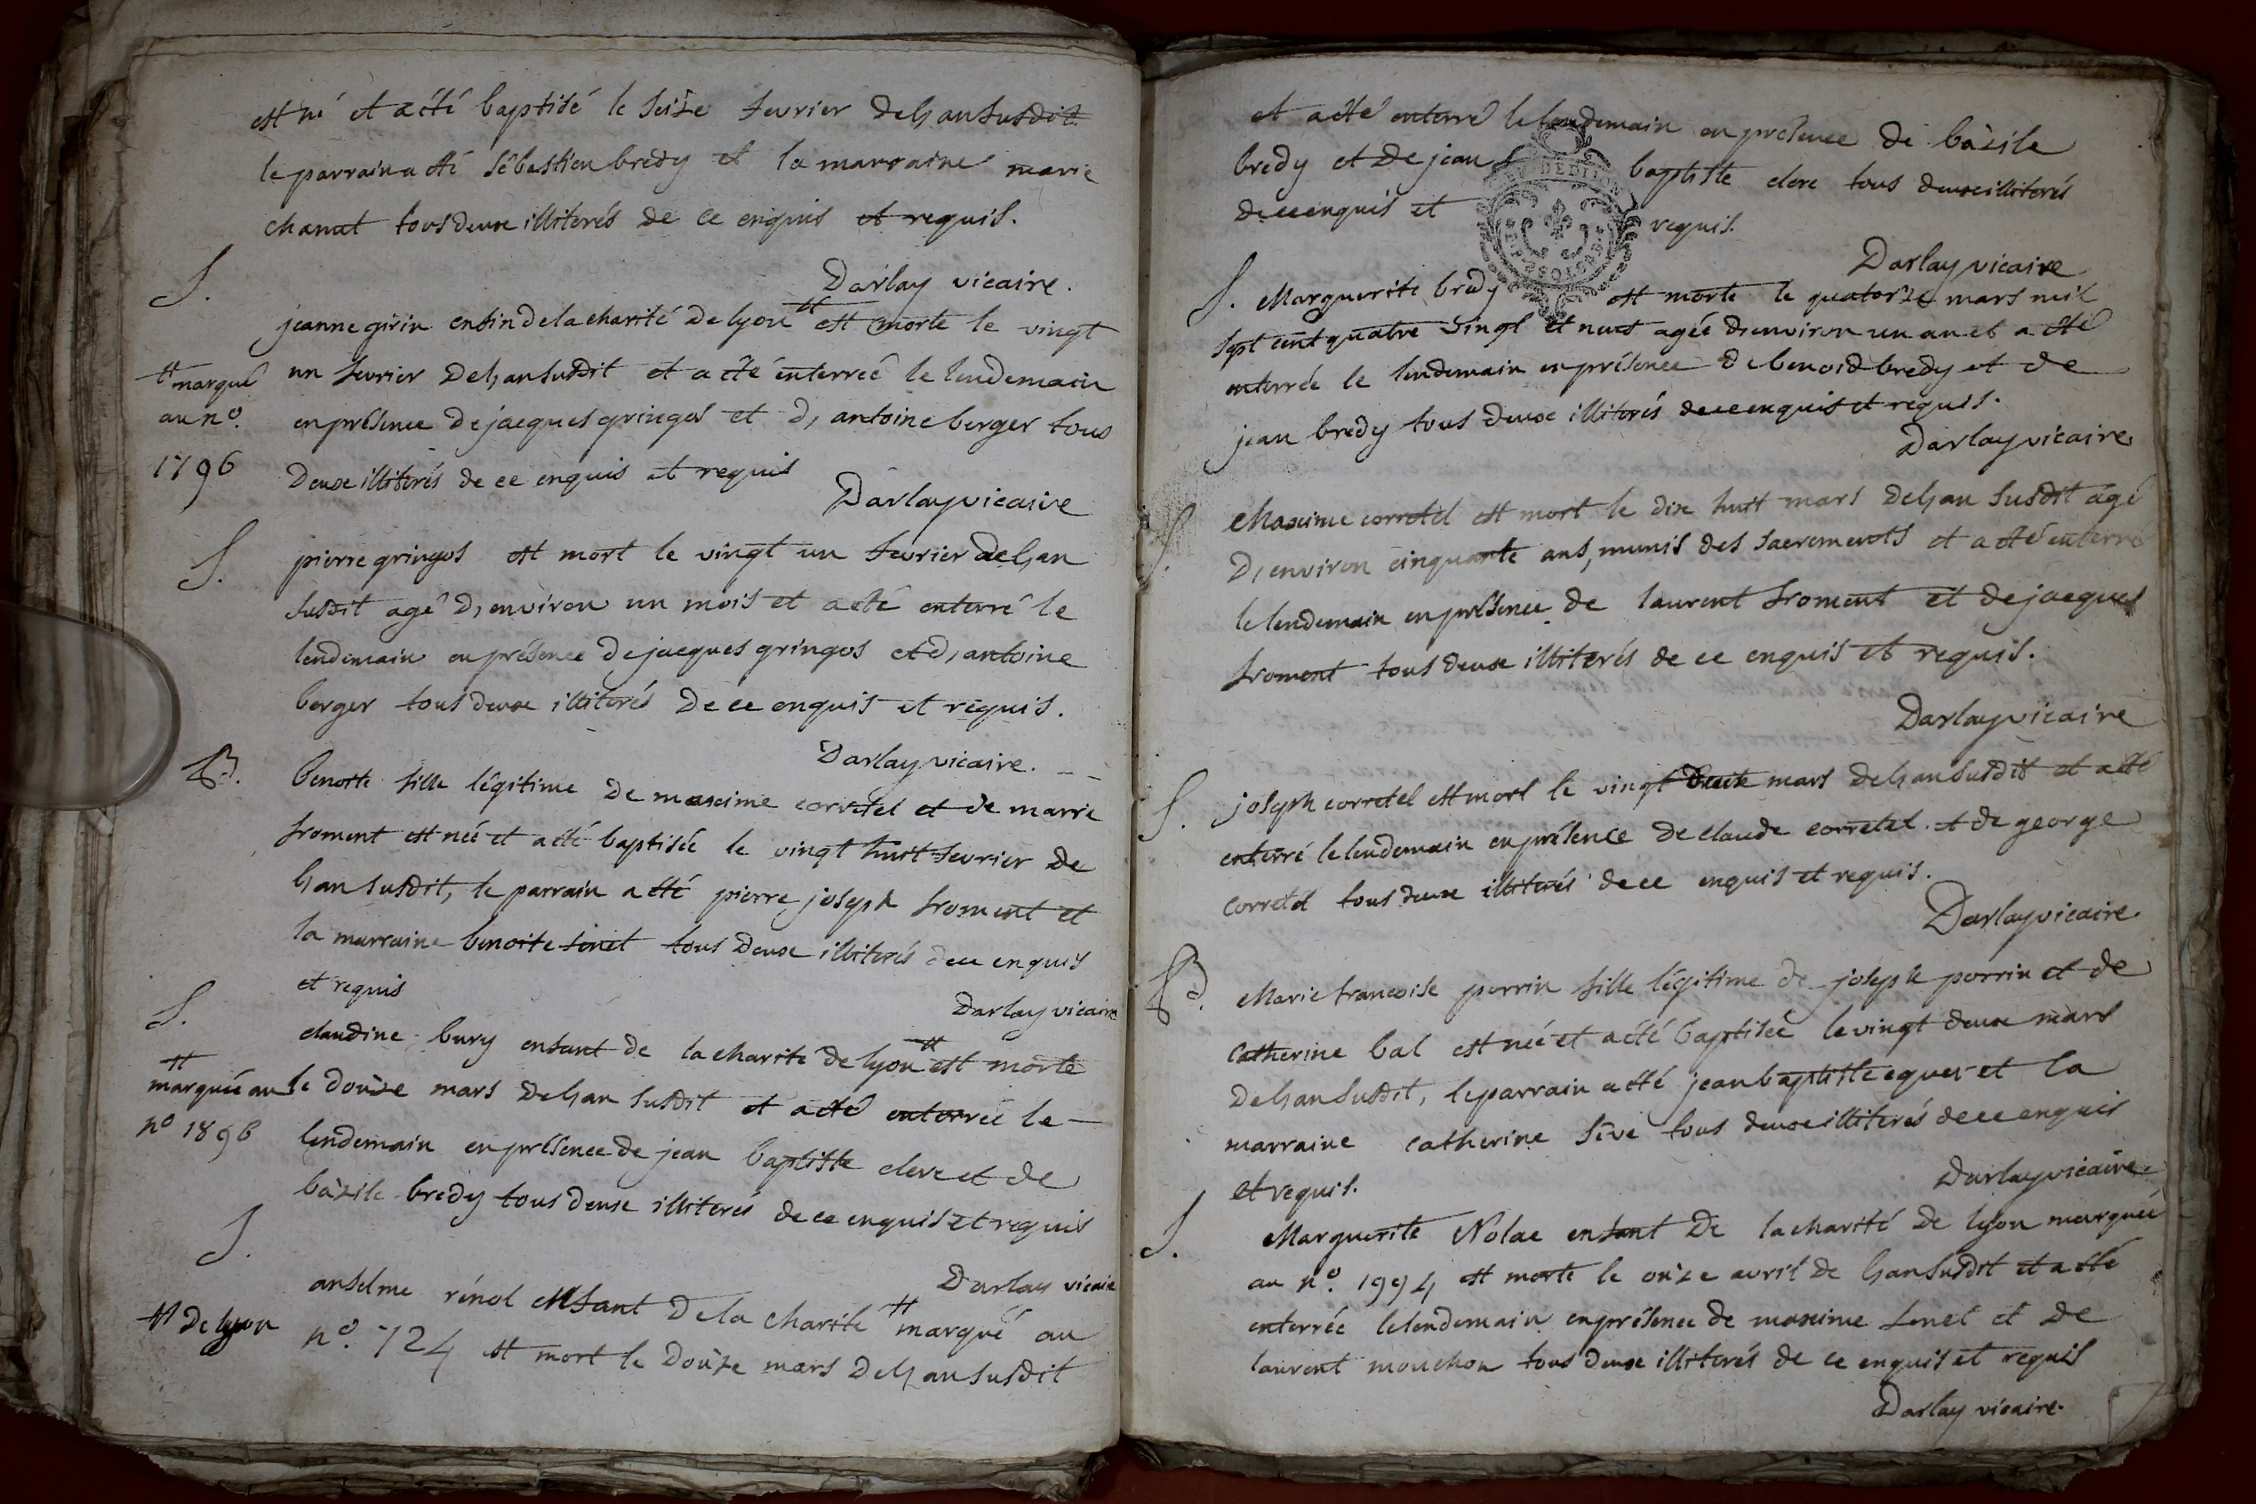 est né et a été baptisé le seize fevrier de l'an susdit
le parrain a été sébastien bredy et la marraine marie
chanat tous deux illiterés de ce enquis et requis.
Darlay vicaire.
S.
jeanne girin enfin de la charité de lyon # est morte le vingt
# marqué
au n°.
1796
un fevrier de l'an susdit et a été enterreé le lendemain
en présence de jacques gringos et d'antoine berger tous
deux illiterés de ce enquis et requis
Darlay vicaire
S.
pierre gringos est mort le vingt un fevrier de l'an
susdit agé d'environ un mois et a eté enterré le
lendemain en présence de jacques gringos et d'antoine
berger tous deux illiterés de ce enquis et requis.
Darlay vicaire.
B.
benoite fille légitime de maxime corretel et de marrie
froment est née et a été baptisée le vingt huit fevrier de
l'an susdit, le parrain a été pierre joseph froment et
la marraine benoite finet tous deux illiterés de ce enquis
et requis
Darlay vicaire
S.
claudine bury enfant de la charité de lyon # est morte
#
marquée au
n° 1896
le douze mars de l'an susdit et a été enterrée le
lendemain en présence de jean baptiste clere et de
bazile bredy tous deux illiterés de ce enquis et requis
Darlay vicaire
S.
anselme rénol enfant de la charité # marqué au
# de lyon
n°. 724 est mort le douze mars de l'an susdit
et a été enterré le lendemain en présence de bàzile
bredy et de jean baptiste clere tous deux illiterés
de ce enquis et requis.
Darlay vicaire
S. Marguerite bredy est morte le quatorze mars mil
sept cent quatre vingt et neuf agée d'environ un an et a été
enterrée le lendemain en présence de benoid bredy et de
jean bredy tous deux illiterés de ce enquis et requis.
Darlay vicaire
S.
Maxime corretel est mort le dix huit mars de l'an susdit agé
d'environ cinquante ans, munis des sacrements et a été enterré
le lendemain en présence de laurent froment et de jacques
froment tous deux illiterés de ce enquis et requis.
Darlay vicaire
S.
joseph corretel est mort le vingt mars de l'an susdit et a été
enterré le lendemain en présence de claude corretel et de george
corretel tous deux illiterés de ce enquis et requis.
Darlay vicaire
B.
Marie francoise perrin fille légitime de joseph perrin et de
catherine bal est née et a été baptisée le vingt deux mars
de l'an susdit, le parrain a été jean baptiste eques et la
marraine catherine séve tous deux illiterés de ce enquis
et requis.
Darlay vicaire.
S.
Marguerite Nolae enfant de la charité de lyon marquée
au n°. 1994 est morte le onze avril de l'an susdit et a été
enterrée le lendemain en présence de maxime finet et de
laurent mouchon tous deux illiterés de ce enquis et requis
Darlay vicaire.